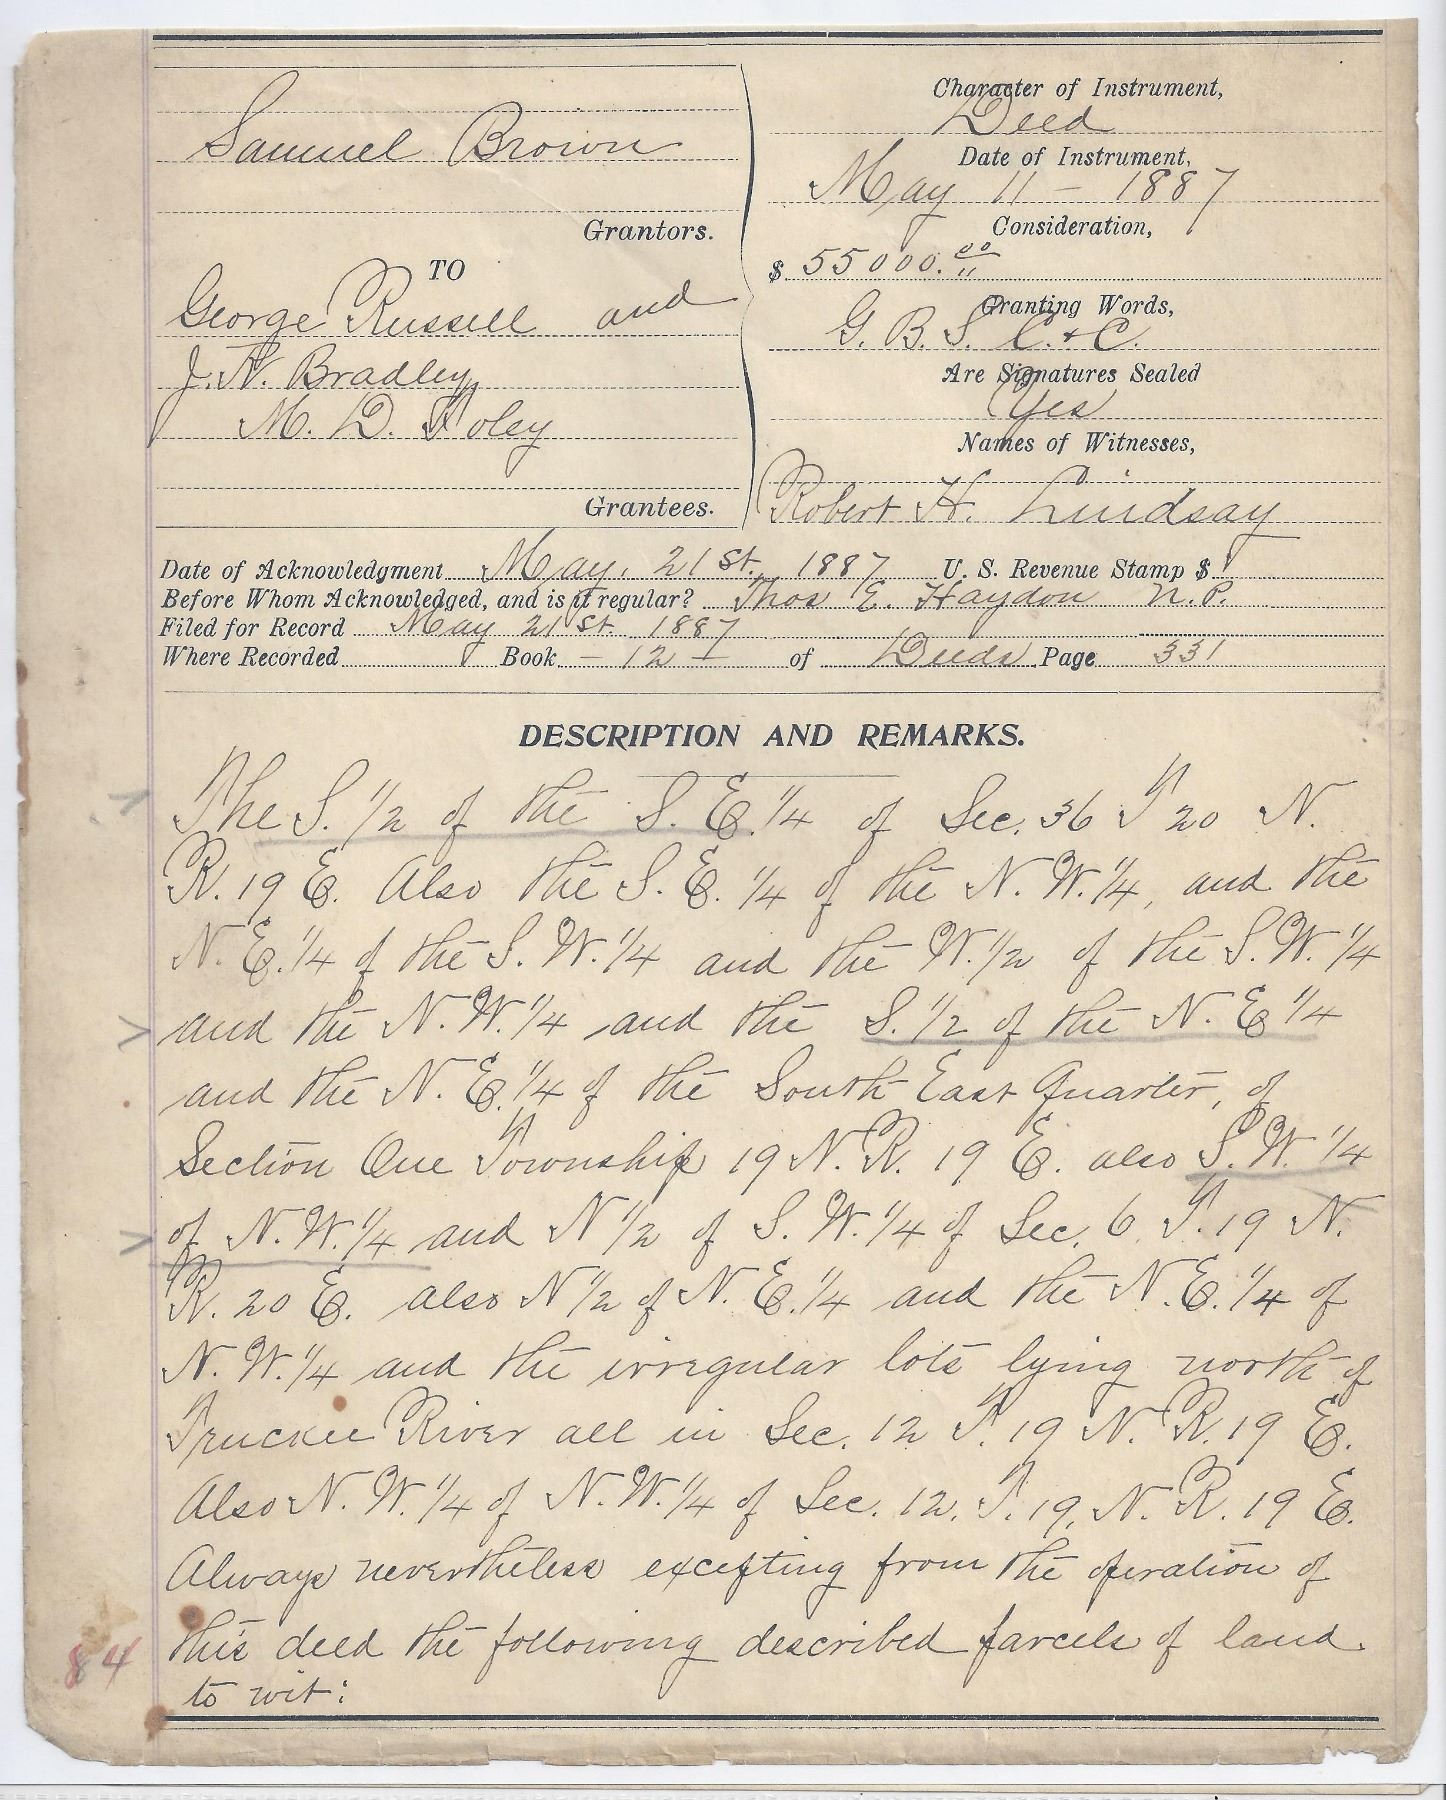 Samuel Brown
Grantors.
TO
George Russell and
J. N. Bradley
M. D. Foley
Grantees.
Character of Instrument,
Deed
Date of Instrument,
May 11 - 1887
Consideration,
$ 55000.00
Granting Words,
G. B. S. C. & C.
Are Signatures Sealed
Yes
Names of Witnesses,
Robert H. Lindsay
Date of Acknowledgment May, 21st. 1887 U. S. Revenue Stamp $
Before Whom Acknowledged, and is it regular? Thos E. Haydon N.P.
Filed for Record May 21st. 1887
Where Recorded Book - 12 - of Deeds Page 331
DESCRIPTION AND REMARKS.
The S. 1/2 of the S. E. 1/4 of Sec. 36 T 20 N.
R. 19 E. Also the S. E. 1/4 of the N. W. 1/4, and the
N. E. 1/4 of the S. W. 1/4 and the W. 1/2 of the S. W. 1/4
and the N. W. 1/4 and the S. 1/2 of the N. E 1/4
and the N. E. 1/4 of the South East Quarter, of
Section One Township 19 N. R. 19 E. also S. W. 1/4
of N. W. 1/4 and N 1/2 of S. W. 1/4 of Sec. 6 T. 19 N.
R. 20 E. also N 1/2 of N. E. 1/4 and the N. E. 1/4 of
N. W. 1/4 and the irregular lots lying north of
Truckee River all in Sec. 12 T. 19 N. R. 19 E.
Also N. W. 1/4 of N. W. 1/4 of Sec. 12, T. 19, N. R. 19 E.
Always nevertheless excepting from the operation of
this deed the following described parcels of land.
to wit:
84